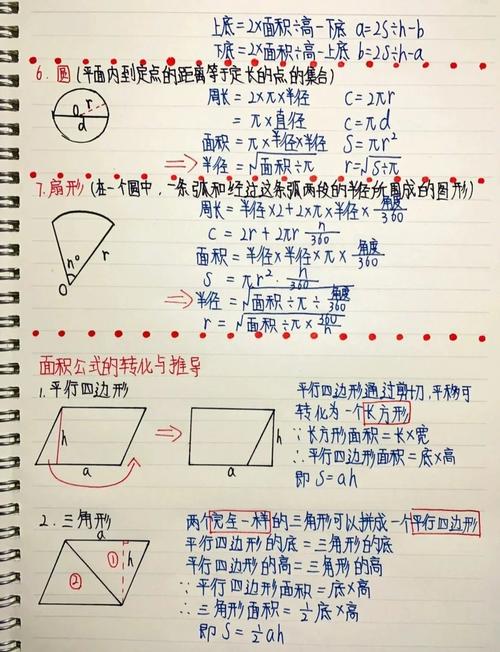 上底=2×面积÷高-下底 a=2S÷h-b
下底=2×面积÷高-上底 b=2S÷h-a
6.圆(平面内到定点的距离等于定长的点的集合)
O r
d
周长=2×π×半径 C=2πr
=π×直径 C=πd
面积=π×半径×半径 S=πr²
⇒半径=√面积÷π r=√S÷π
7.扇形(在一个圆中,一条弧和经过这条弧两段的半径所围成的图形)
n° r
O
周长=半径×2+2×π×半径×角度/360
C=2r+2πr n/360
面积=半径×半径×π×角度/360
S=πr²·n/360
⇒半径=√面积÷π÷角度/360
r=√面积÷π×360/n
面积公式的转化与推导
1.平行四边形
h ⇒ h
a a
平行四边形通过剪切,平移可
转化为一个长方形
∵长方形面积=长×宽
∴平行四边形面积=底×高
即S=ah
2.三角形
a
① h
②
两个完全一样的三角形可以拼成一个平行四边形
平行四边形的底=三角形的底
平行四边形的高=三角形的高
∵平行四边形面积=底×高
∴三角形面积=1/2底×高
即S=1/2ah